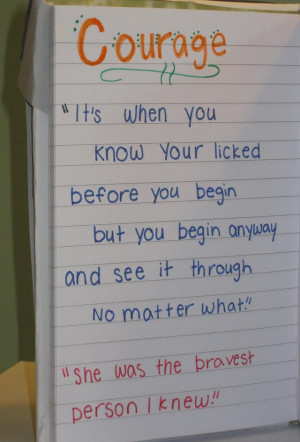 Courage
"It's when you
know your licked
before you begin
but you begin anyway
and see it through
No matter what."
"She was the bravest
person I knew."